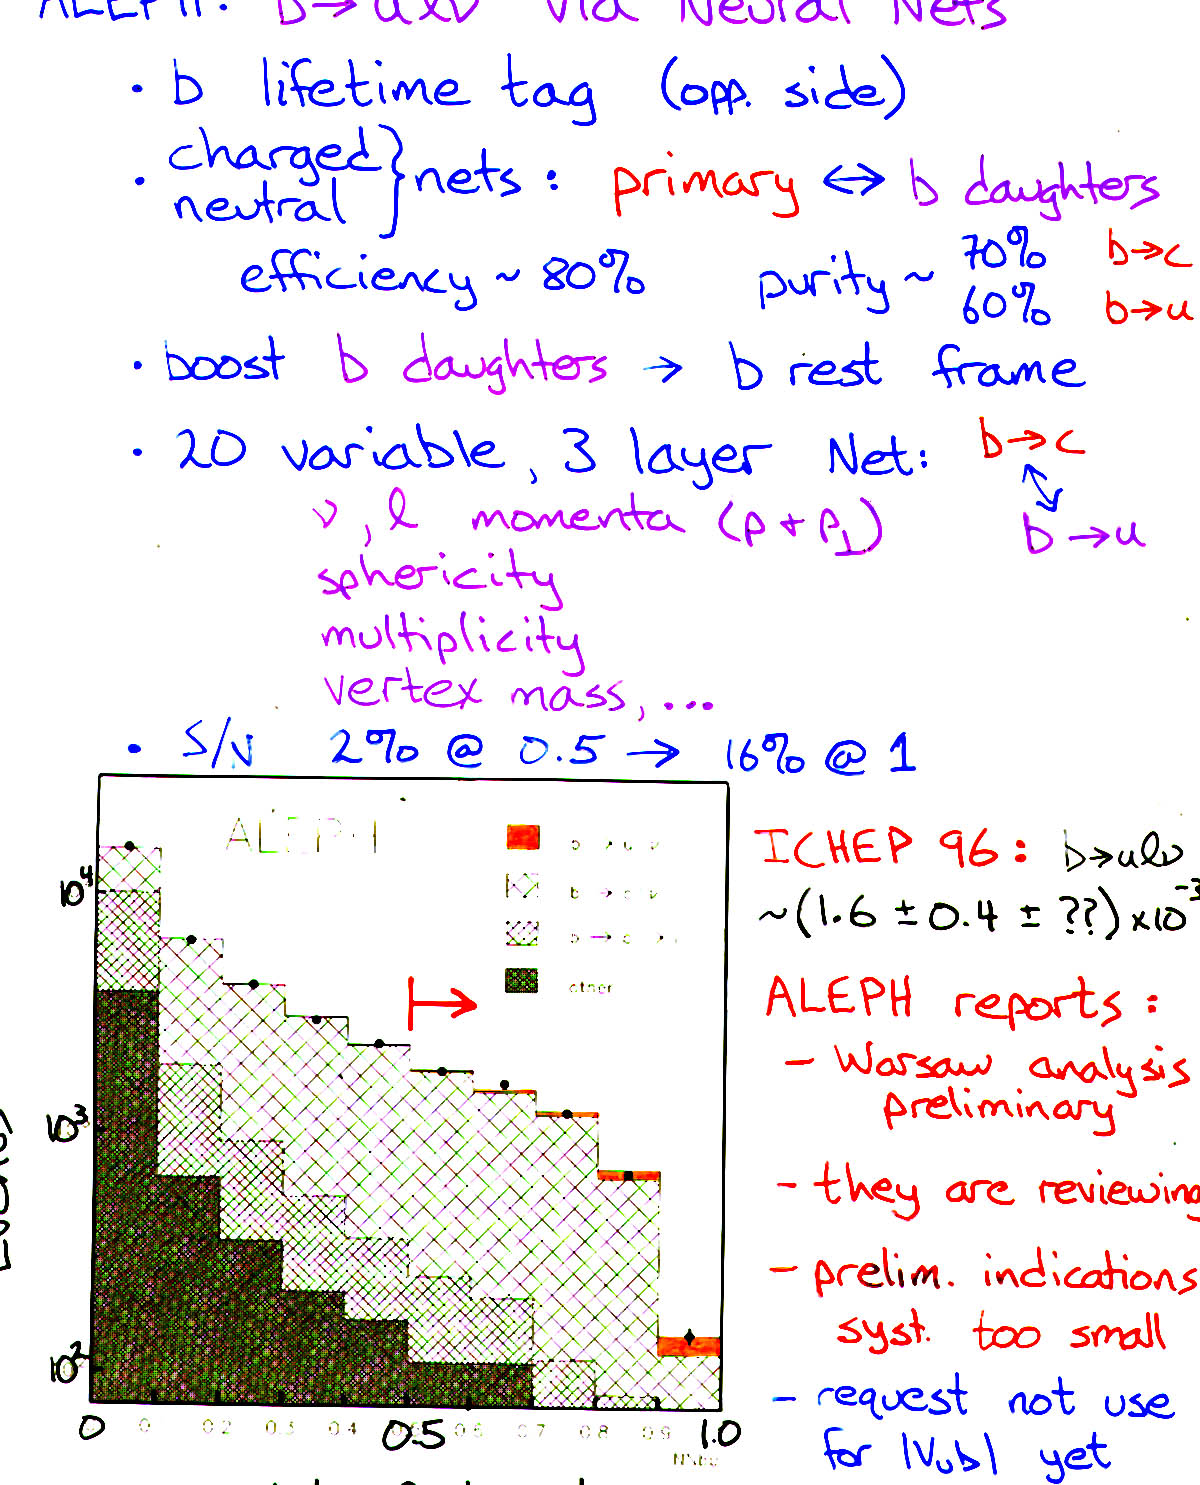 ALEPH: b→uℓν via Neural Nets
• b lifetime tag (opp. side)
• charged
neutral } nets : primary ↔ b daughters
efficiency ~ 80% purity ~ 70% b→c
60% b→u
• boost b daughters → b rest frame
• 20 variable, 3 layer Net: b→c
↔
ν, ℓ momenta (p + p⊥) b→u
sphericity
multiplicity
vertex mass, ...
• S/N 2% @ 0.5 → 16% @ 1
ALEPH
other
10⁴
10³
10²
0 0.2 0.3 0.4 0.5 0.6 0.7 0.8 0.9 1.0
ICHEP 96: b→uℓν
~(1.6 ± 0.4 ± ??) x10⁻³
ALEPH reports :
- Warsaw analysis
preliminary
- they are reviewing
- prelim. indications
syst. too small
- request not use
for |Vub| yet